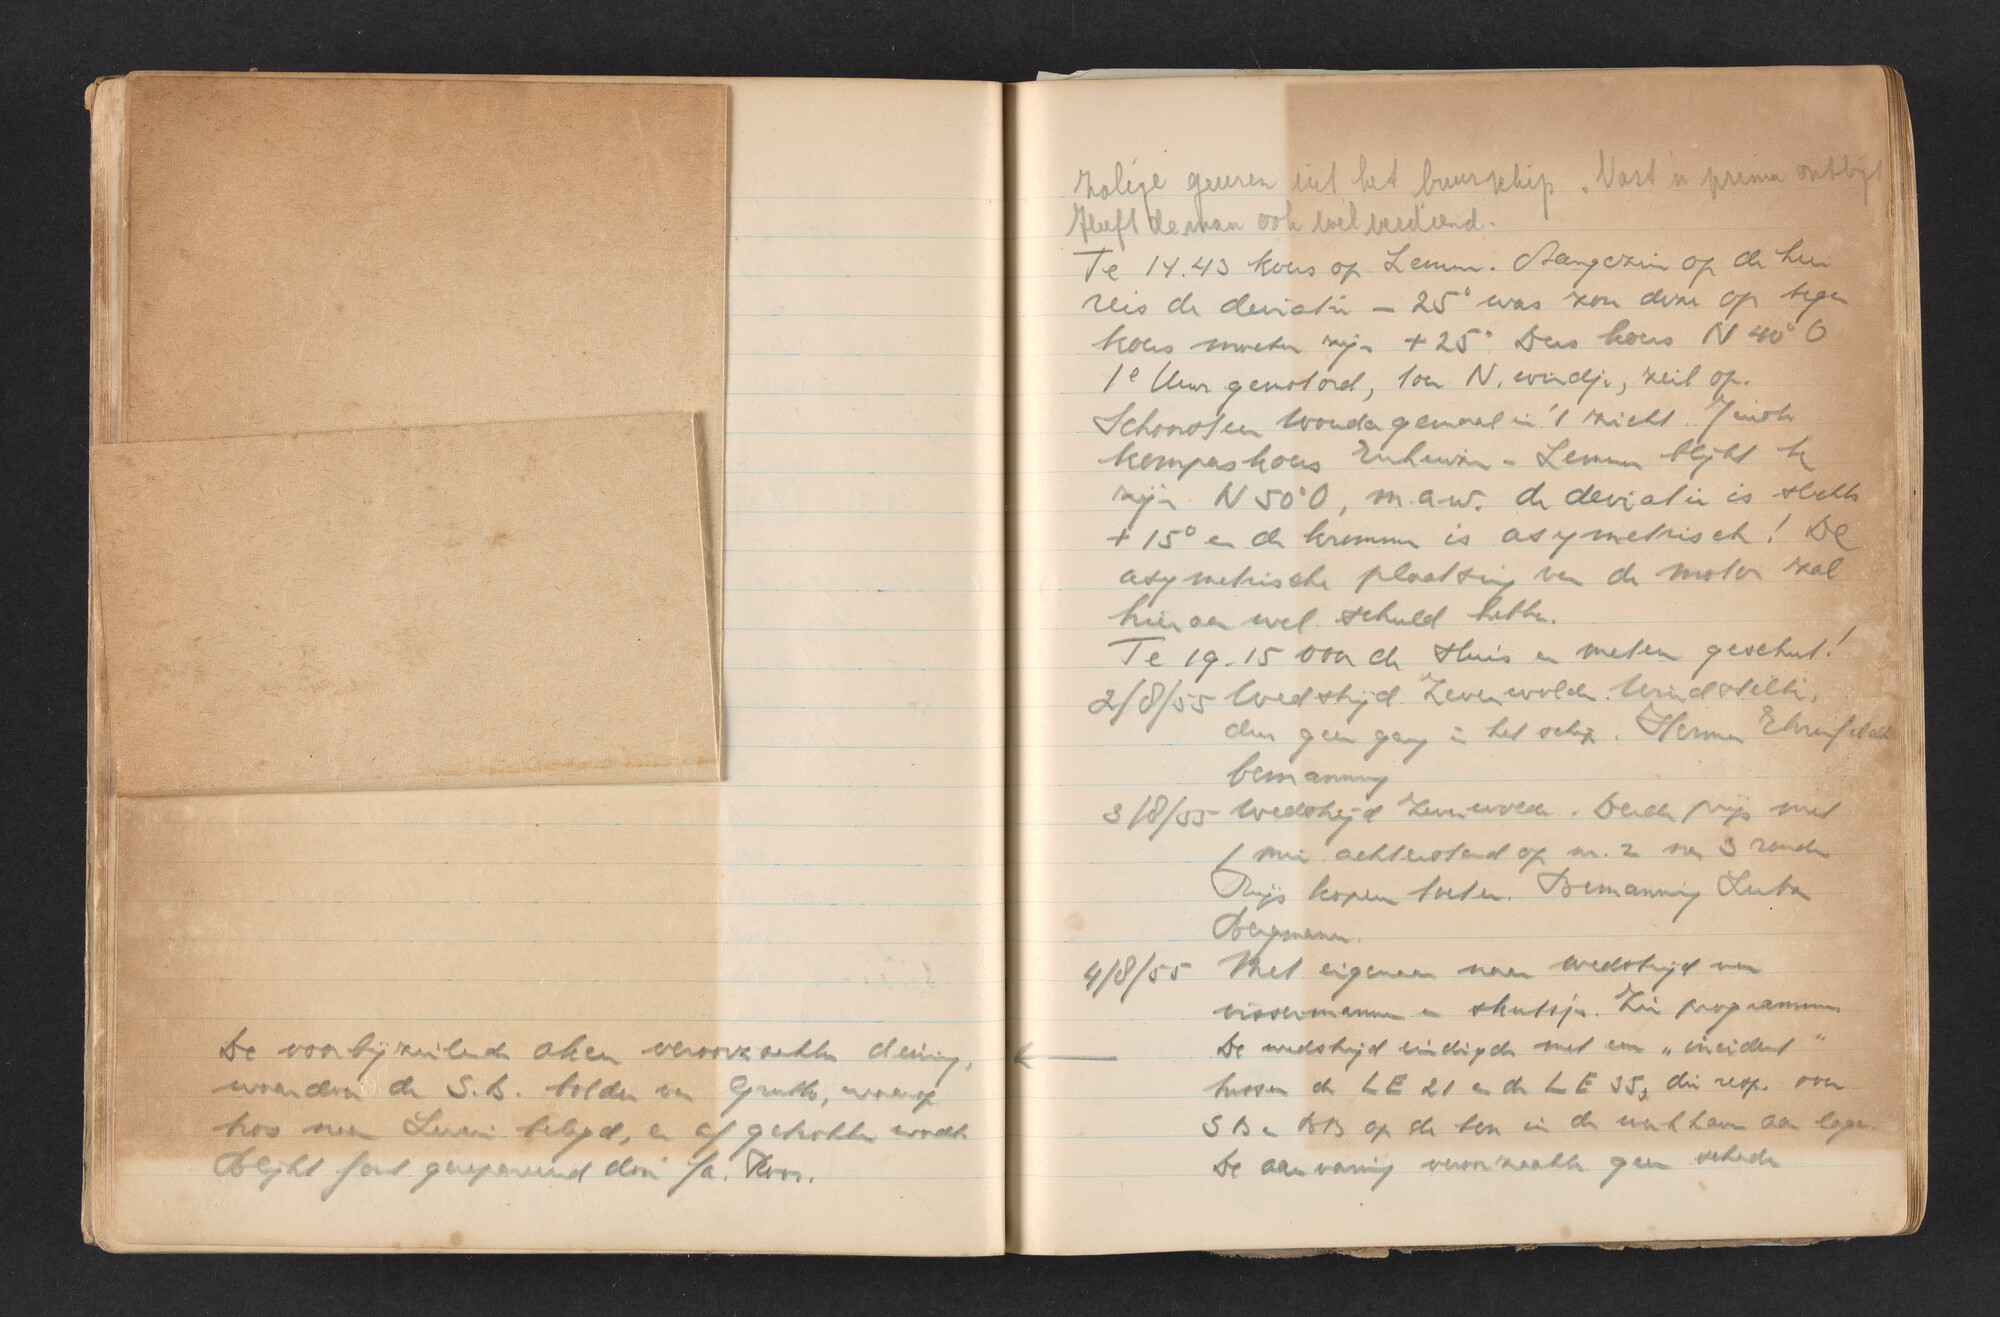 De voorbijzeilende aken veroorzaakten deining,
waardoor de S.B. bolder van Grutto, waarop
kos naar Leeuw belegd, en afgetrokken wordt
Blijkt fout gerepareerd door fa. Koos.
zalige geuren uit het buurschip. Vast 'n prima ontbijt
Heeft de man ook wel verdiend.
Te 14.43 koers op Lemmer. Aangezien op de heen
reis de deviatie - 25° was zou deze op tegen
koers moeten zijn + 25°. Dus koers N 40° O
1e Uur gemotord, toen N. windje, zeil op.
Schoorsteen Woudagemaal in 't zicht. Juiste
kompaskoers Enkhuizen - Lemmer blijkt te
zijn N 50° O, m.a.w. de deviatie is slechts
+ 15° en de kromme is asymetrisch! De
asymetrische plaatsing van de motor zal
hieraan wel schuld hebben.
Te 19.15 voor de sluis en meteen geschut!
2/8/55 Wedstrijd Zevenwolden. Windstilte,
dus geen gang in het schip. Herman
bemanning
3/8/55 Wedstrijd Zevenwolden. Derde prijs met
1 min achterstand op nr. 2 na 3 ronden
Prijs kopen toeter. Bemanning
Bergmann.
4/8/55 Met eigenaar naar wedstrijd van
visserman en skutsje. Zie programma
De wedstrijd eindigde met een "incident"
tussen de LE 21 en de LE 35, die resp. over
SB en BB op de ton in de werkhaven aan lagen.
De aanvaring veroorzaakte geen schade